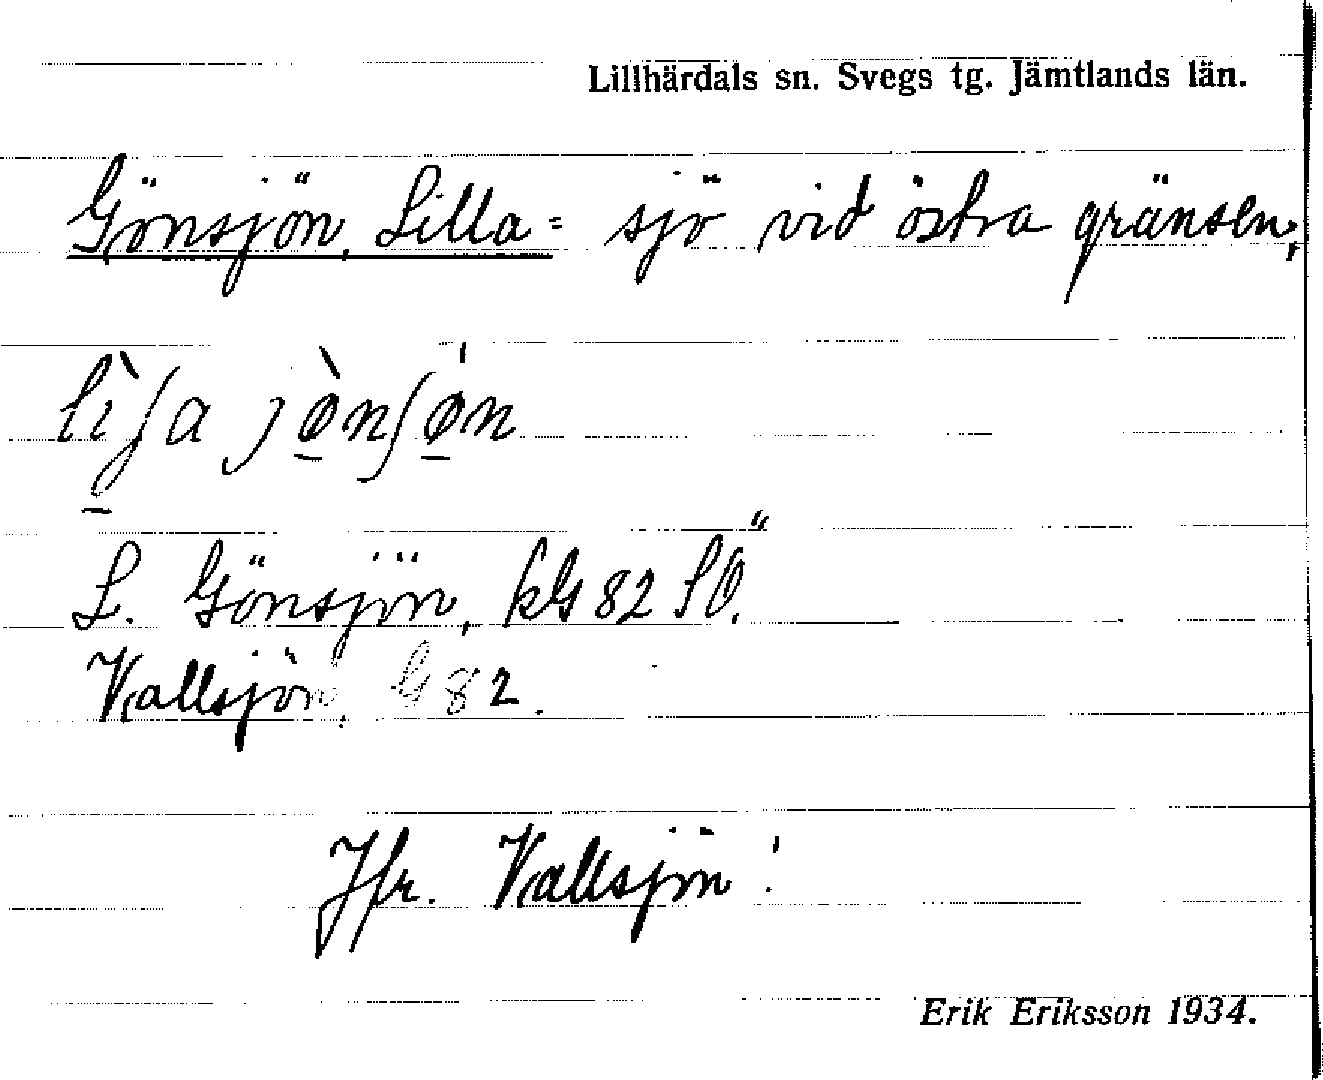 Lillhärdals sn. Svegs tg. Jämtlands län.
Gönsjön, Lilla = sjö vid östra gränsen;
L. Gönsjön, kG 82 SÖ.
Kallsjön, G 82.
Jfr. Kallsjön!
Erik Eriksson 1934.